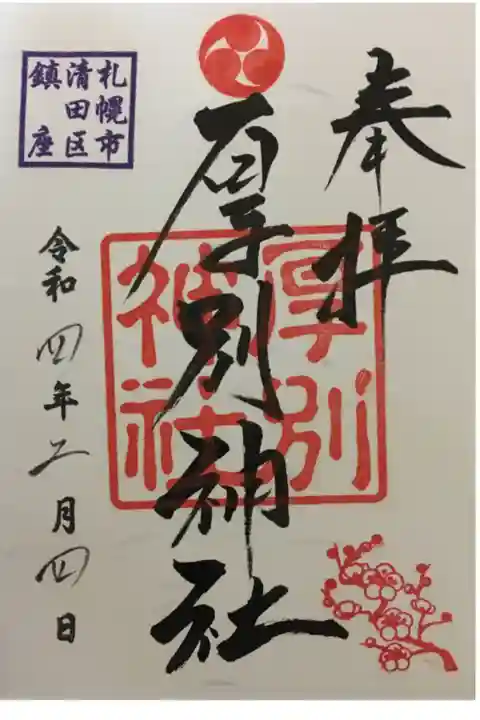 奉拝
厚別神社
厚別
神社
札幌市
清田区
鎮座
令和四年二月四日